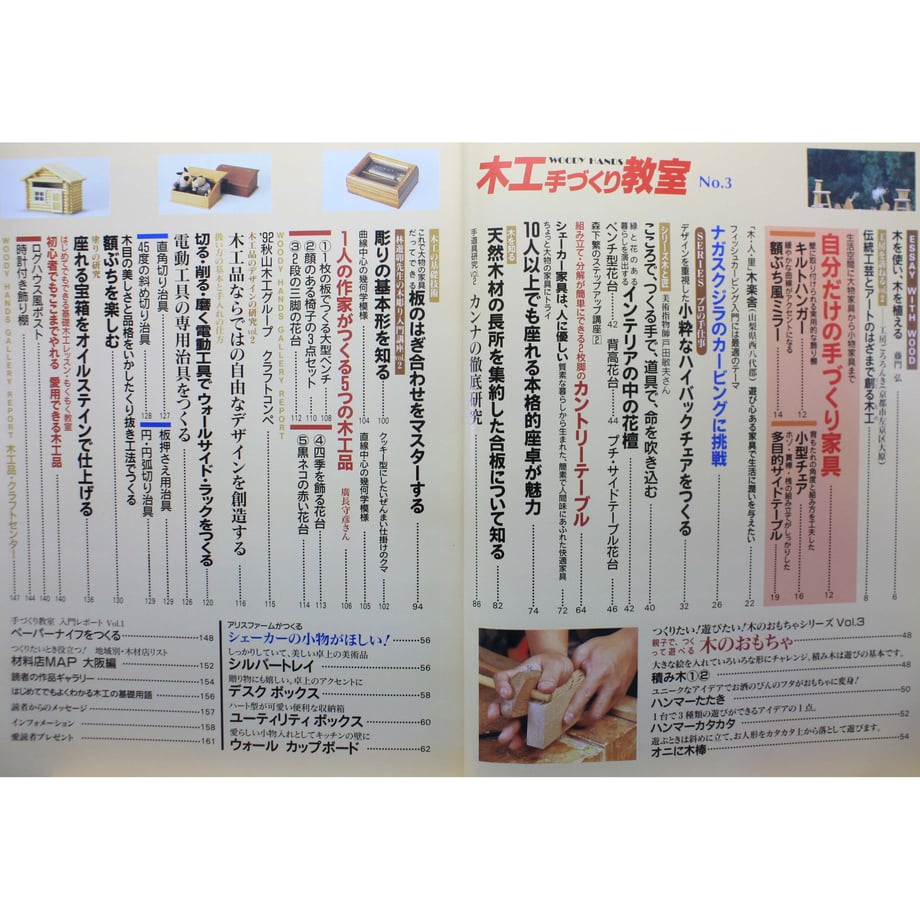 木工手づくり教室
WOODY HANDS
No.3
ESSAY WITH WOOD
木を使い、木を植える 藤門 弘 6
伝統工芸とアートのはざまで創る木工 8
生活空間に大物家具から小物家具まで
自分だけの手づくり家具 12
壁に取り付けられる実用的な飾り棚
キルトハンガー 12
緩やかな曲線がアクセントになる
額ぶち風ミラー 14
背もたれの角度と組み方を工夫した
小型チェア 16
多目的サイドテーブル 19
「木・人・里」木楽舎(山梨県西八代郡)遊び心ある家具で生活に潤いを与えたい 22
フィッシュカービング入門には最適のテーマ
ナガスクジラのカービングに挑戦 26
SERIES プロの手仕事
デザインを重視した小粋なハイバックチェアをつくる 32
シリーズ木と匠 美術指物師戸田敏夫さん
こころで、つくる手で、道具で、命を吹き込む 40
緑と花のある暮らしを演出する インテリアの中の花壇 42
ベンチ型花台 42
背高花台 44
プチ・サイドテーブル花台 46
森下繁のステップアップ講座②
組み立て・分解が簡単にできる2枚脚のカントリーテーブル 64
シェーカー家具は、人に優しい 質素な暮らしから生まれた、簡素で人間味にあふれた快適家具 72
ちょっと大物の家具にトライ
10人以上でも座れる本格的座卓が魅力 74
木を知る
天然木材の長所を集約した合板について知る 82
手道具研究 カンナの徹底研究 86
つくりたい!遊びたい!木のおもちゃシリーズ Vol.3
親子で、つくって遊べる 木のおもちゃ 48
大きな絵を入れていろいろな形にチャレンジ。積み木は遊びの基本です。
積み木①② 48
ユニークなアイデアでお酒のびんのフタがおもちゃに変身!
ハンマーたたき 50
1台で3種類の遊びができるアイデアの1点。
ハンマーカタカタ 52
遊ぶときは斜めに立て、お人形をカタカタ上から落として遊びます。
オニに木棒 54
木工の基礎技術
これで大物の家具だってできる 板のはぎ合わせをマスターする 94
林遊卯先生の木彫り入門講座 vol.2
彫りの基本形を知る 100
クッキー型にしたいぜんまい仕掛けのクマ 102
曲線中心の幾何学模様 104
直線中心の幾何学模様 105
1人の作家がつくる5つの木工品 廣長守彦さん 106
①1枚の板でつくる大型ベンチ 108
②顔のある椅子の3点セット 110
③32段の三脚の花台 112
④四季を飾る花台 113
⑤黒ネコの赤い花台 114
WOODY HANDS GALLERY REPORT
'92秋山木工グループ クラフトコンペ 115
木工品のデザインの研究 vol.2
木工品ならではの自由なデザインを創造する 116
扱い方の基本と手入れの仕方
切る・削る・磨く電動工具でウォールサイド・ラックをつくる 120
電動工具の専用治具をつくる 126
直角切り治具 127
45度の斜め切り治具 128
板押さえ用治具 129
円・円弧切り治具 129
木目の美しさと品格をいかしたくり抜き工法でつくる
額ぶちを楽しむ 130
塗りの研究
座れる宝箱をオイルステインで仕上げる 136
はじめてでもできる基礎木工レッスン・もくもく教室
初心者でもここまでやれる 愛用できる木工品 140
ログハウス風ポスト 140
時計付き飾り棚 144
WOODY HANDS GALLERY REPORT 木工品・クラフトセンター 147
アリスファームがつくる
シェーカーの小物がほしい! 56
しっかりしていて、美しい卓上の美術品
シルバートレイ 56
贈り物にも嬉しい。卓上のアクセントに
デスク ボックス 58
ハート型が可愛い便利な収納箱
ユーティリティ ボックス 60
愛らしい小物入れとしてキッチンの壁に
ウォール カップボード 62
手づくり教室 入門レポート Vol.1
ペーパーナイフをつくる 148
つくりたいとき役立つ! 地域別・木材店リスト
材料店MAP 大阪編 152
読者の作品ギャラリー 154
はじめてでもよくわかる木工の基礎用語 156
読者からのメッセージ 157
インフォメーション 158
愛読者プレゼント 161